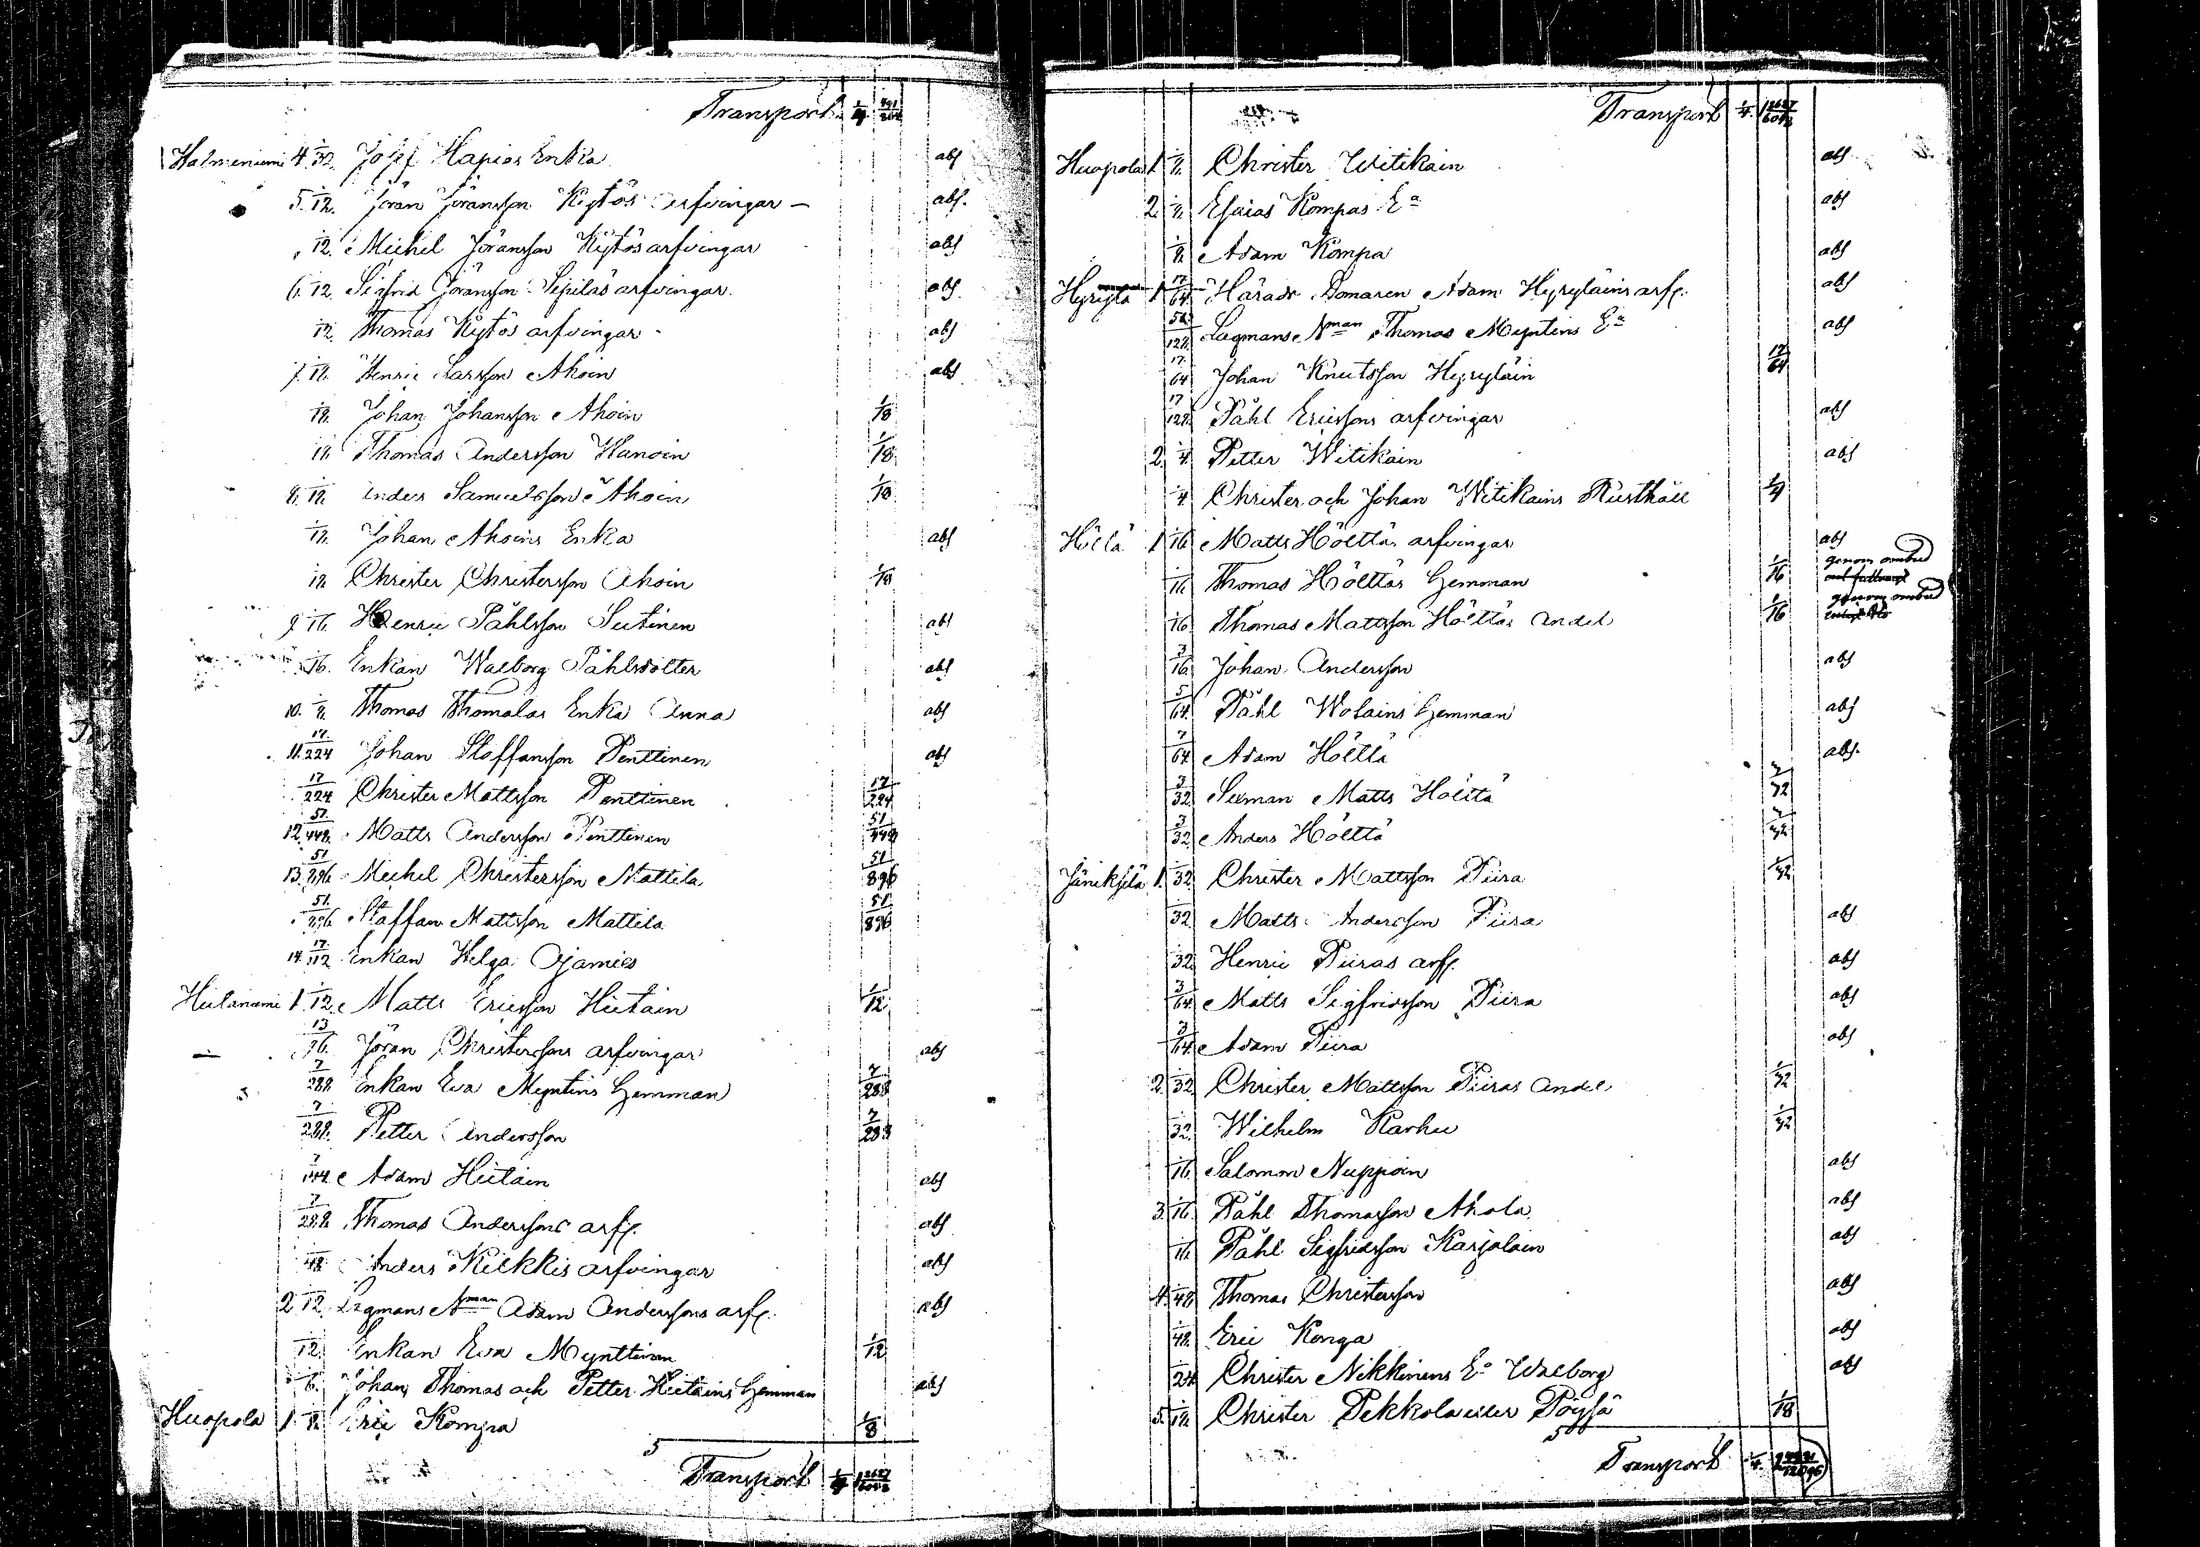 Transport 1/4 491/2016
Halmeniemi 4. 1/32. Josef Hapios Enka abs
5. 1/12. Jöran Jöransson Kytös arfvingar — abs.
1/12. Michel Jöransson Kytös arfvingar abs
6. 1/12. Sigfrid Jöransson Sipiläs arfvingar. abs
1/12. Thomas Kytös arfvingar - abs
7. 1/18. Henric Larsson Ahoin abs
1/18. Johan Johansson Ahoin 1/18
1/18. Thomas Andersson Hanoin 1/18
8. 1/18 Anders Samuelsson Ahoin 1/18
1/18. Johan Ahoins Enka abs
1/18 Christer Christersson Ahoin 1/18
9. 1/16. Henric Påhlsson Sutinen abs
1/16. Enkan Walborg Påhlsdotter abs
10. 1/8. Thomas Thomalas Enka Anna abs
11. 17/224 Johan Staffansson Penttinen abs
17/224 Christer Mattsson Penttinen 17/224
12. 51/448. Matts Andersson Penttinen 51/448
13. 51/896 Michel Christersson Mattila 51/896
51/896 Staffan Mattsson Mattila 51/896
14. 17/112 Enkan Helga Ojamies
Hietaniemi 1. 1/12. Matts Ericsson Hietain 1/12
13/36. Jöran Christerssons arfvingar abs
7/288. Enkan Eva Myntins Hemman 7/288
7/288. Petter Andersson 7/288
7/144. Adam Hietain abs
7/288. Thomas Anderssons arfv. abs
1/48 Anders Kilkkis arfvingar abs
2. 1/12. Lagmans Nman Adam Anderssons arfv. abs
1/12. Enkan Eva Mynttinen 1/12
1/6. Johan, Thomas och Petter Hietains Hemman abs
Huopola 1. 1/8. Eric Kompa 1/8
Transport 1/4
Transport 1/4.
Huopola 1. 1/8. Christer Witikain abs
2. 1/8. Esaias Kompas Ea abs
1/8. Adam Kompa abs
Hyrylä 1. 17/64 Härads Domaren Adam Hyryläins arfv. abs
51/128. Lagmans Nman Thomas Myntins Ea abs
17/64 Johan Knutsson Hyryläin 17/64
17/128. Påhl Ericssons arfvingar abs
2. 1/4. Petter Witikain abs
1/4 Christer och Johan Witikains Rusthåll 1/4
Hölttä 1. 1/16. Matts Hölttäs arfvingar abs
1/16 Thomas Hölttäs Hemman 1/16 genom ombud
1/16 Thomas Mattsson Hölttäs andel 1/16 genom ombud
3/16. Johan Andersson abs
5/64. Påhl Wolains Hemman abs
7/64 Adam Hölttä abs.
3/32 Sexman Matts Hölttä 3/32
3/32. Anders Hölttä 3/32
Jänikselä 1. 1/32. Christer Mattsson Piira 1/32
1/32 Matts Andersson Piira abs
1/32. Henric Piiras arfv. abs
3/64 Matts Sigfridsson Piira abs
3/64 Adam Piira abs
2. 1/32. Christer Mattsson Piiras andel 1/32
1/32. Wilhelm Karhu 1/32
1/16. Salomon Nuppoin abs
3. 1/16. Påhl Thomasson Ahola. abs
1/16. Påhl Sigfridsson Karjalain abs
4. 1/48. Thomas Christersson abs
1/48. Eric Konga abs
1/24 Christer Nikkinens Ea Walborg abs
5. 1/18. Christer Pekkola eller Pöysä 1/18
Transport 1/4.